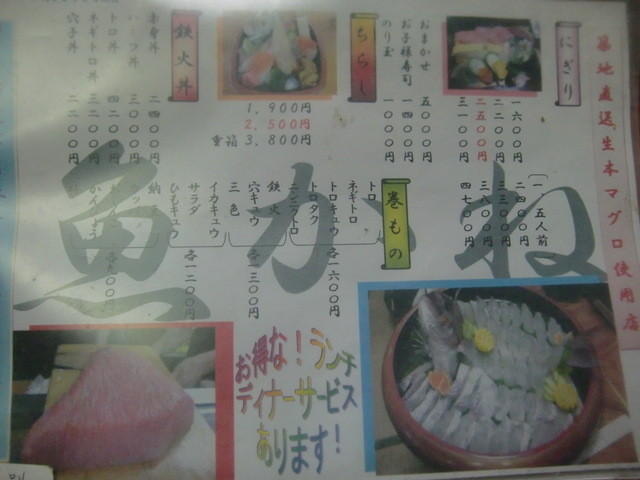 築地直送生本マグロ使用店
にぎり
一六〇〇円
二二〇〇円
二五〇〇円
三一〇〇円
（一、五人前）
二四〇〇円
三三〇〇円
三八〇〇円
四七〇〇円
おまかせ 五〇〇〇円
お子様寿司 一四〇〇円
のり玉 一〇〇〇円
ちらし
1,900円
2,500円
重箱 3,800円
鉄火丼
赤身丼 二四〇〇円
三〇〇〇円
トロ丼 四二〇〇円
ネギトロ丼 三二〇〇円
穴子丼 二二〇〇円
巻もの
トロ
ネギトロ
トロキュウ
トロタク
各一六〇〇円
鉄火
穴キュウ
三色
各一三〇〇円
イカキュウ
サラダ
ひもキュウ
各一二〇〇円
納
各九〇〇円
魚かね
お得な！ランチ
ディナーサービス
あります！